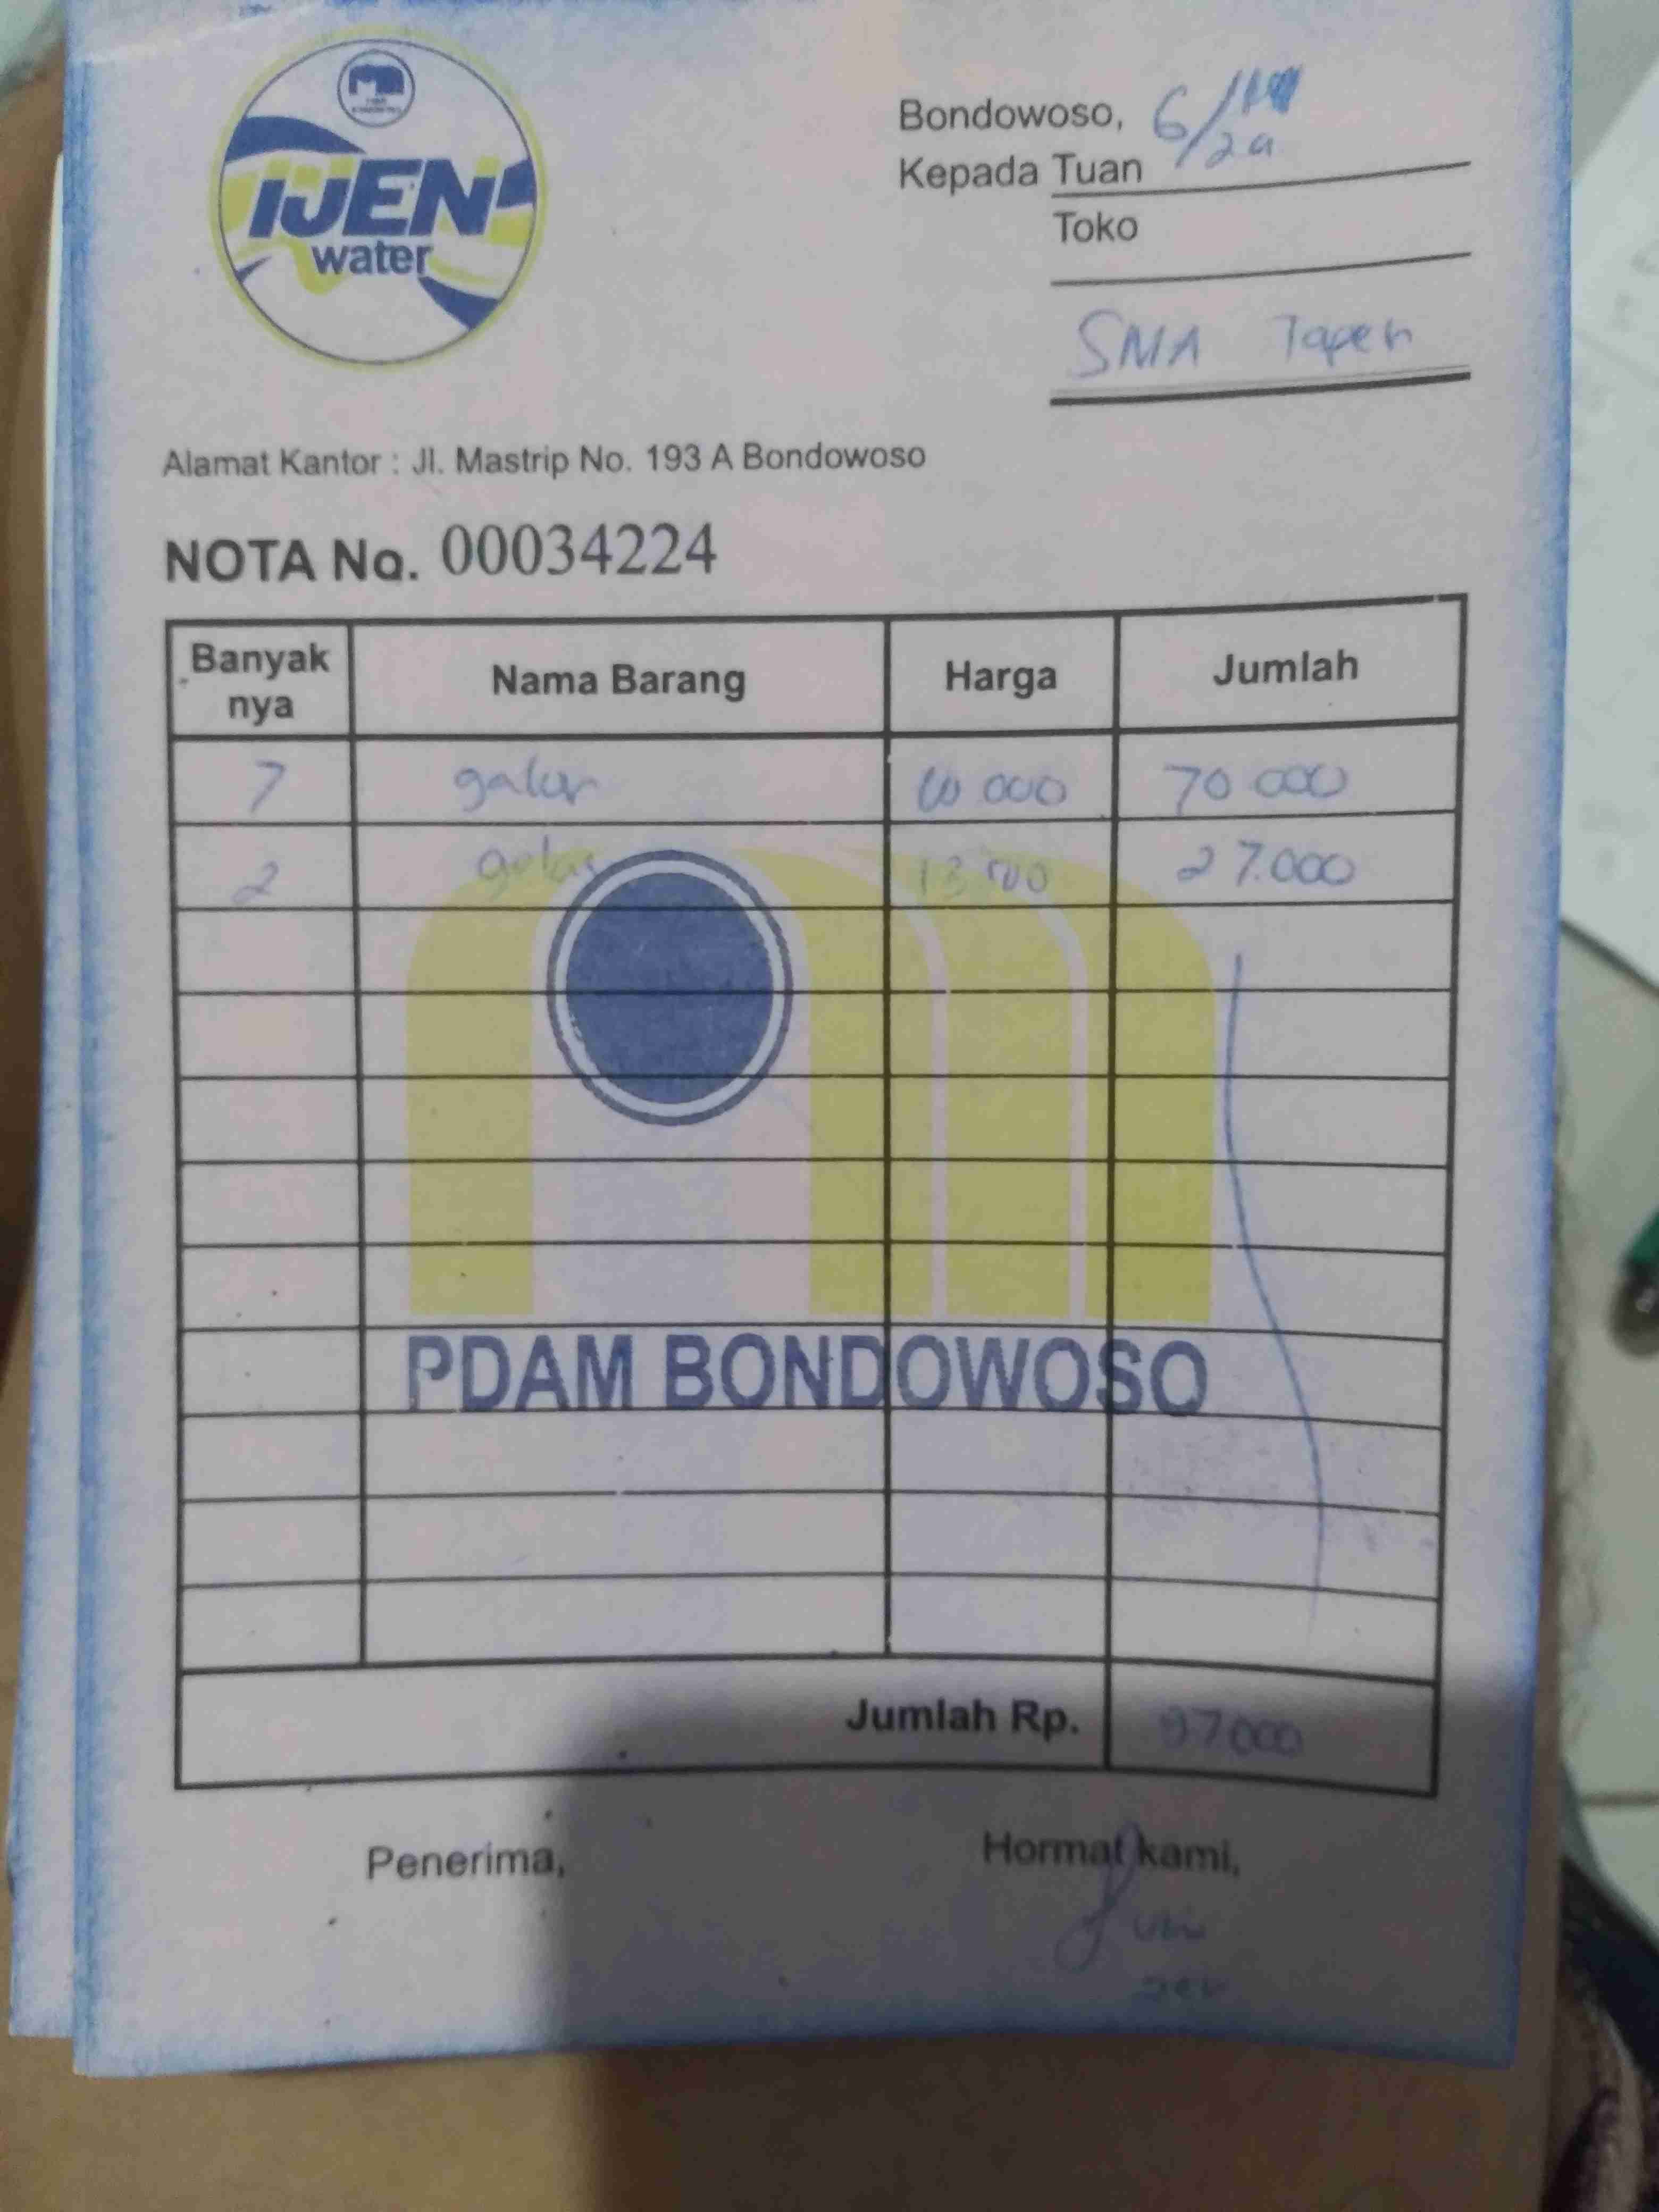 IJEN
water
Bondowoso, 6/
Kepada Tuan
Toko
SMA Tapen
Alamat Kantor : Jl. Mastrip No. 193 A Bondowoso
NOTA No. 00034224
Banyak nya Nama Barang Harga Jumlah
7 galon 10 000 70 000
2 gelas 13 500 27.000
PDAM BONDOWOSO
Jumlah Rp. 97000
Penerima, Hormat kami,